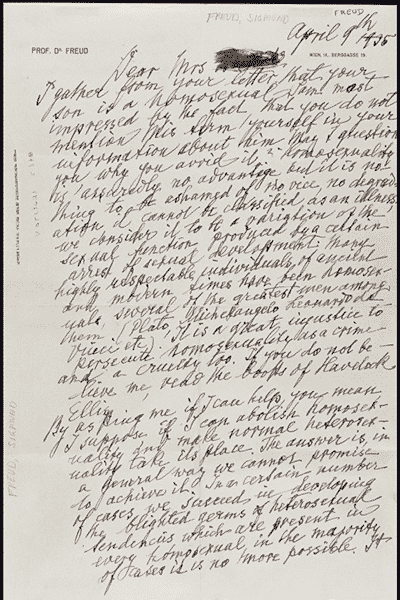 FREUD, SIGMUND
FREUD
April 9th 1935
PROF. DR FREUD
WIEN, IX., BERGGASSE 19.
Dear Mrs
I gather from your letter that your
son is a homosexual. I am most
impressed by the fact, that you do not
mention this term yourself in your
information about him. May I question
you why you avoid it? Homosexuality
is assuredly no advantage but it is no-
thing to be ashamed of, no vice, no degrad-
ation, it cannot be classified as an illness,
we consider it to be a variation of the
sexual function produced by a certain
arrest of sexual development. Many
highly respectable individuals of ancient
and modern times have been homosex-
uals, several of the greatest men among
them. (Plato, Michelangelo, Leonardo da
Vinci etc). It is a great injustice to
persecute homosexuality as a crime
and a cruelty too. If you do not be-
lieve me, read the books of Havelock
Ellis.
By asking me if I can help, you mean,
I suppose, if I can abolish homosex-
uality and make normal heterosex-
uality take its place. The answer is, in
a general way, we cannot promise
to achieve it. In a certain number
of cases we succeed in developing
the blighted germs of heterosexual
tendencies which are present in
every homosexual, in the majority
of cases it is no more possible. It
FREUD, SIGMUND